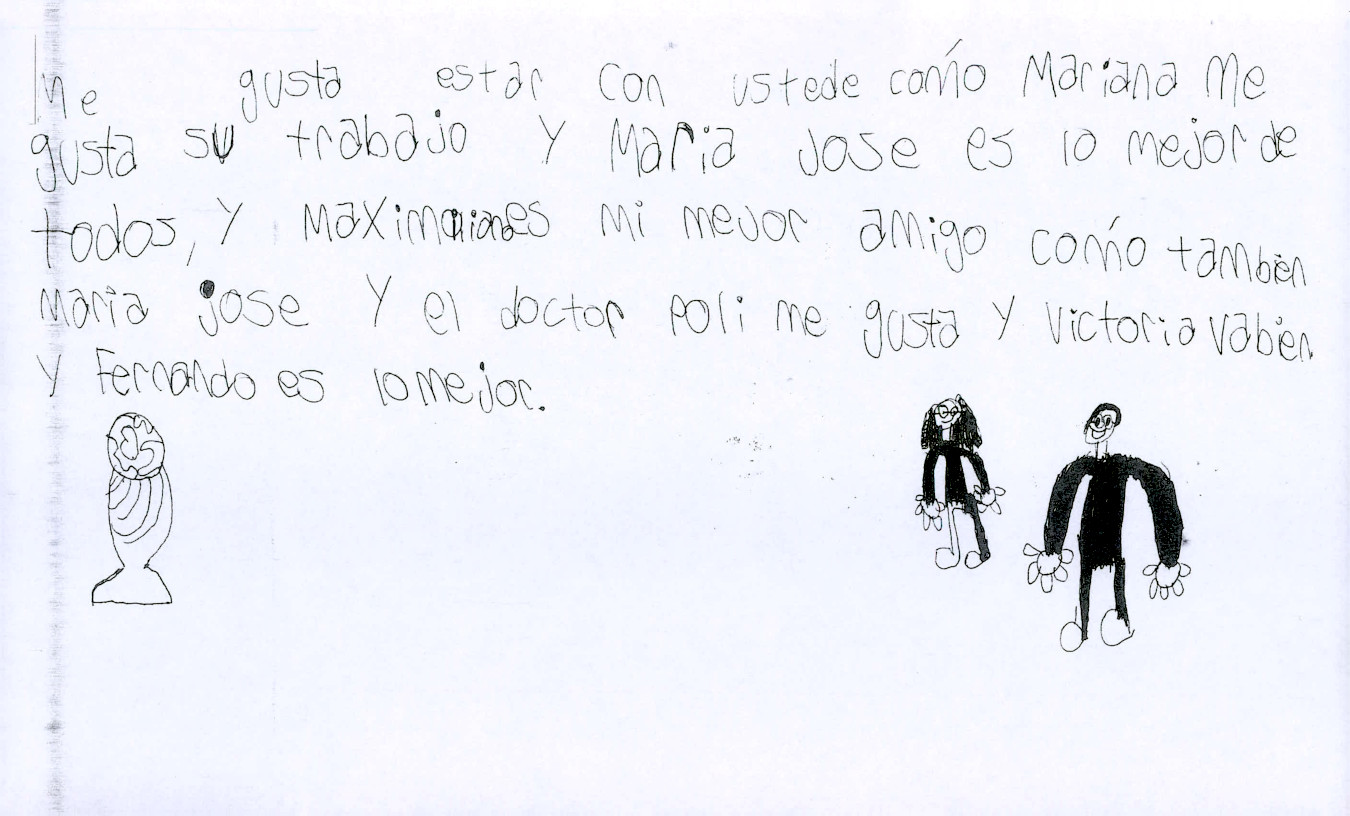 Me gusta estar con ustede como Mariana Me
gusta su trabajo y Maria Jose es lo mejor de
todos, y Maximiliano es mi mejor amigo como tambien
maria jose y el doctor poli me gusta y victoria va bien
y Fernando es lo mejor.